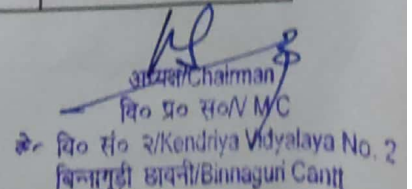 अध्यक्ष/Chairman
वि० प्र० स०/V MC
के० वि० सं० २/Kendriya Vidyalaya No. 2
बिन्नागुड़ी छावनी/Binnaguri Cantt